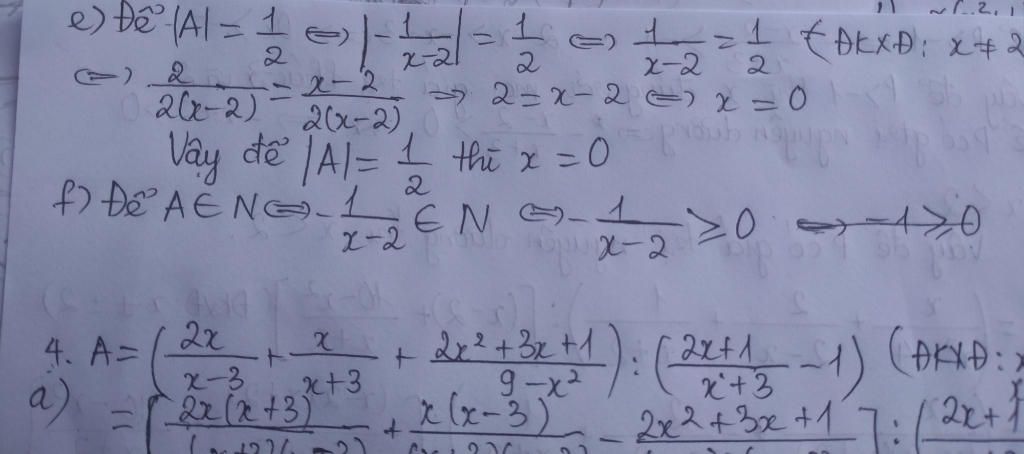 e) Để |A| = 1/2 ⇔ |-1/(x-2)| = 1/2 ⇔ 1/(x-2) = 1/2 (ĐKXĐ: x ≠ 2
⇔ 2/(2(x-2)) = (x-2)/(2(x-2)) ⇒ 2 = x-2 ⇔ x = 0
Vậy để |A| = 1/2 thì x = 0
f) Để A ∈ N ⇔ -1/(x-2) ∈ N ⇔ -1/(x-2) ≥ 0 ⇔ -1 ≥ 0
4. A = (2x/(x-3) + x/(x+3) + (2x²+3x+1)/(9-x²)) : ((2x+1)/(x+3) - 1) (ĐKXĐ: x
a) = [2x(x+3)/ + x(x-3)/ - (2x²+3x+1)/] : (2x+1